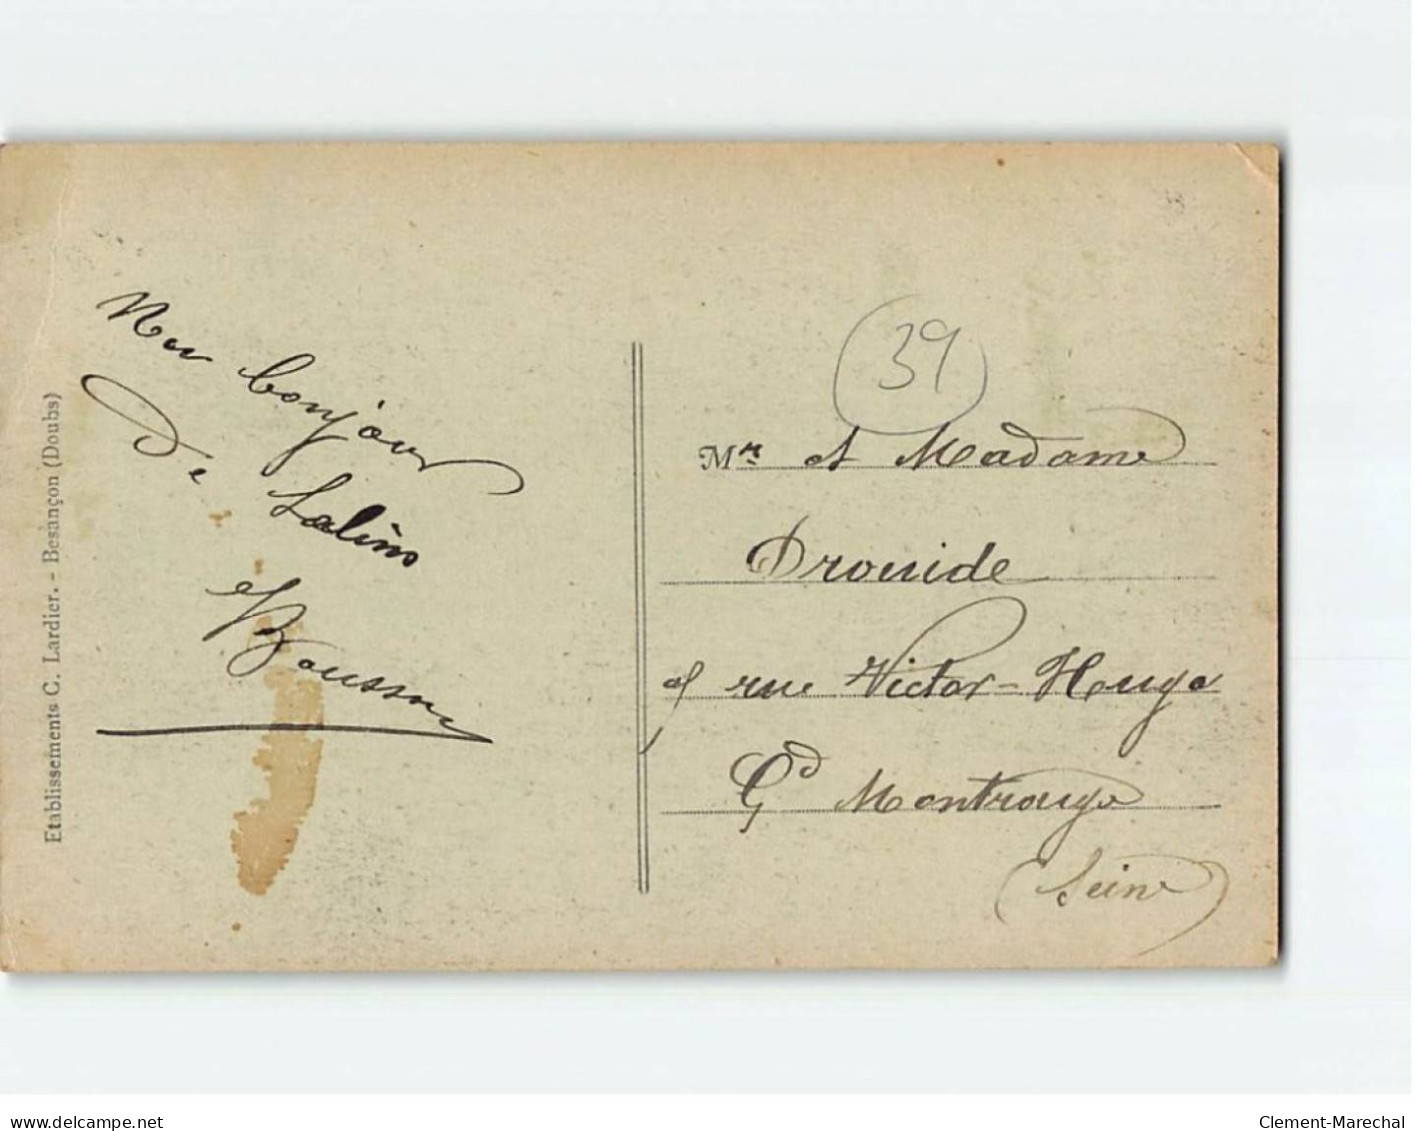 Etablissements C. Lardier. - Besançon (Doubs)
bonjour
De Salins
39
Mr et Madame
Drouide
rue Victor-Hugo
Gd Montrouge
(Seine)
delcampe.net
Clement-Marechal